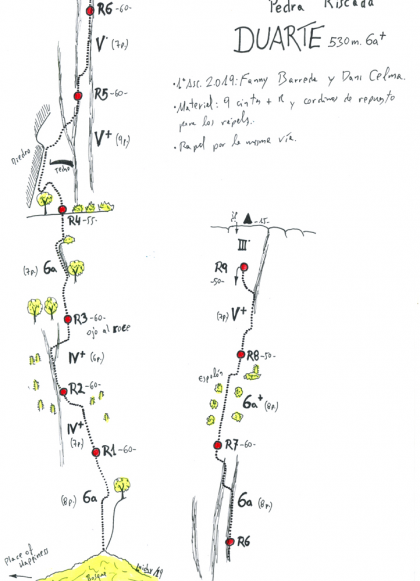 Pedra Riscada
DUARTE 530m. 6a+
· 1ª Asc. 2019: Fanny Barreda y Dani Celma.
· Material: 9 cintas + R y cordinos de repuesto
para los rápels.
· Rapel por la misma vía.
R6 -60-
V (7p.)
R5 -60-
V+ (9p.)
Diedro
Techo
R4 -55-
(7p.) 6a
R3 -60-
ojo al roce
IV+ (6p.)
R2 -60-
IV+
(7p.)
R1 -60-
(8p.) 6a
Place of
Happiness
Bosque
-15-
III
R9
-50-
(7p) V+
R8 -50-
Espolón
6a+ (8p.)
R7 -60-
6a (8p.)
R6